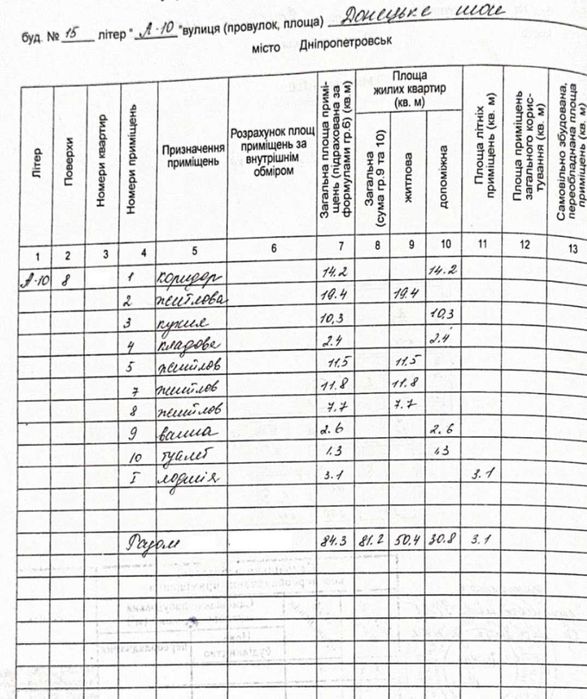 буд. № 15 літер " А-10 " вулиця (провулок, площа) Донецьке шосе
місто Дніпропетровськ
Літер Поверхи Номери квартир Номери приміщень Призначення приміщень Розрахунок площ приміщень за внутрішнім обміром Загальна площа приміщень (підрахована за формулами гр.6) (кв.м) Площа жилих квартир (кв. м) Загальна (сума гр.9 та 10) житлова допоміжна Площа літніх приміщень (кв. м) Площа приміщень загального користування (кв. м) Самовільно збудована, переобладнана площа приміщень (кв. м)
1 2 3 4 5 6 7 8 9 10 11 12 13
А-10 8 1 коридор 14.2 14.2
2 житлова 19.4 19.4
3 кухня 10,3 10,3
4 кладова 2.4 2.4
5 житлов 11.5 11.5
7 житлов 11.8 11.8
8 житлов 7.7 7.7
9 ванна 2.6 2.6
10 туалет 1.3 1.3
I лоджія 3.1 3.1
Разом 84.3 81.2 50.4 30.8 3.1